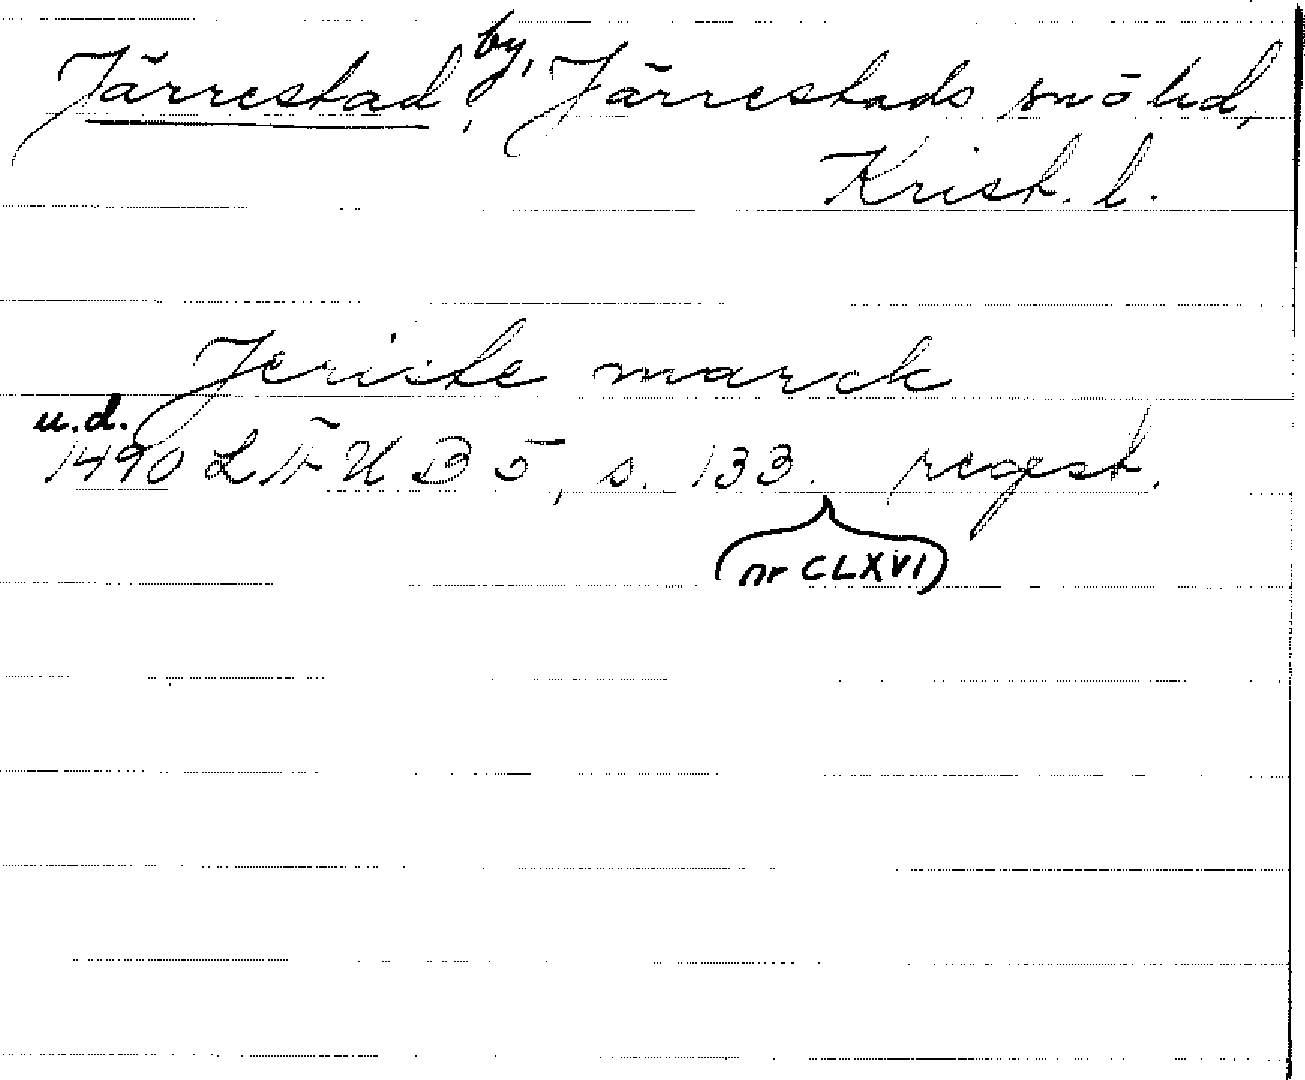 Järrestad, by, Järrestads sn ö hd,
Krist. l.
Jeriste marck
u.d.
1490 LÄUB 5, s. 133. regest.
(nr CLXVI)